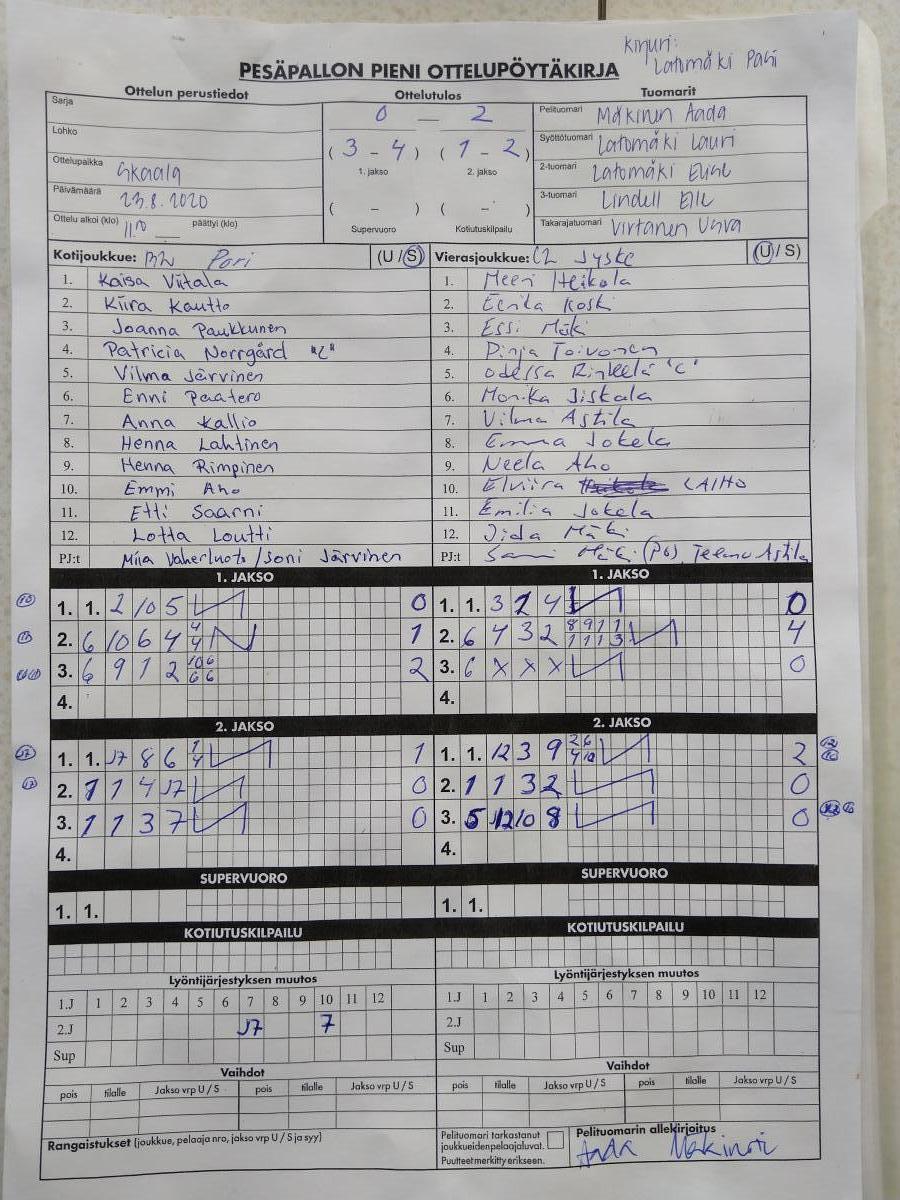 Kirjuri:
Latomäki Pasi
PESÄPALLON PIENI OTTELUPÖYTÄKIRJA
Ottelun perustiedot
Ottelutulos
Tuomarit
Sarja
Lohko
Ottelupaikka Skaala
Päivämäärä 23.8.2020
Ottelu alkoi (klo) 11.00 päättyi (klo)
0 — 2
( 3 - 4 ) ( 1 - 2 )
1. jakso 2. jakso
( - ) ( - )
Supervuoro Kotiutuskilpailu
Pelituomari Mäkinen Aada
Syöttötuomari Latomäki Lauri
2-tuomari Latomäki Elise
3-tuomari Lindell Elle
Takarajatuomari Virtanen
Kotijoukkue: Pori (U / S)
1. Kaisa Viitala
2. Kiira Kautto
3. Joanna Paukkunen
4. Patricia Norrgård "C"
5. Vilma Järvinen
6. Enni Paatero
7. Anna Kallio
8. Henna Lahtinen
9. Henna Rimpinen
10. Emmi Aho
11. Etti Saarni
12. Lotta Loutti
PJ:t Miia Vaherluoto / Joni Järvinen
Vierasjoukkue: Jyske (U / S)
1. Meeri Heikola
2. Eerika Koski
3. Essi Mäki
4. Pinja Toivonen
5. Odessa Rinkeelä "C"
6. Monika Jiskala
7. Vilma Astila
8. Emma Jokela
9. Neela Aho
10. Elviira LAIHO
11. Emilia Jokela
12. Jida Mäki
PJ:t Sami Mäki (PJ), Teemu Astila
1. JAKSO
1. 1. 2 10 5 0
2. 6 10 6 4 4 4 1
3. 6 9 1 2 10 6 6 6 2
4.
1. JAKSO
1. 1. 3 2 4 0
2. 6 4 3 2 8 9 1 1 1 1 1 3 4
3. 6 X X X 0
4.
2. JAKSO
1. 1. J7 8 6 1 4 1
2. 1 1 4 J7 0
3. 1 1 3 7 0
4.
2. JAKSO
1. 1. 12 3 9 2 6 4 10 2
2. 1 1 3 2 0
3. 5 12 10 8 0
4.
SUPERVUORO
1. 1.
SUPERVUORO
1. 1.
KOTIUTUSKILPAILU
KOTIUTUSKILPAILU
Lyöntijärjestyksen muutos
1.J 1 2 3 4 5 6 7 8 9 10 11 12
2.J J7 7
Sup
Lyöntijärjestyksen muutos
1.J 1 2 3 4 5 6 7 8 9 10 11 12
2.J
Sup
Vaihdot
pois tilalle Jakso vrp U / S pois tilalle Jakso vrp U / S
Vaihdot
pois tilalle Jakso vrp U / S pois tilalle Jakso vrp U / S
Rangaistukset (joukkue, pelaaja nro, jakso vrp U / S ja syy)
Pelituomari tarkastanut
joukkueiden pelaajaluvat.
Puutteet merkitty erikseen.
Pelituomarin allekirjoitus
Aada Mäkinen